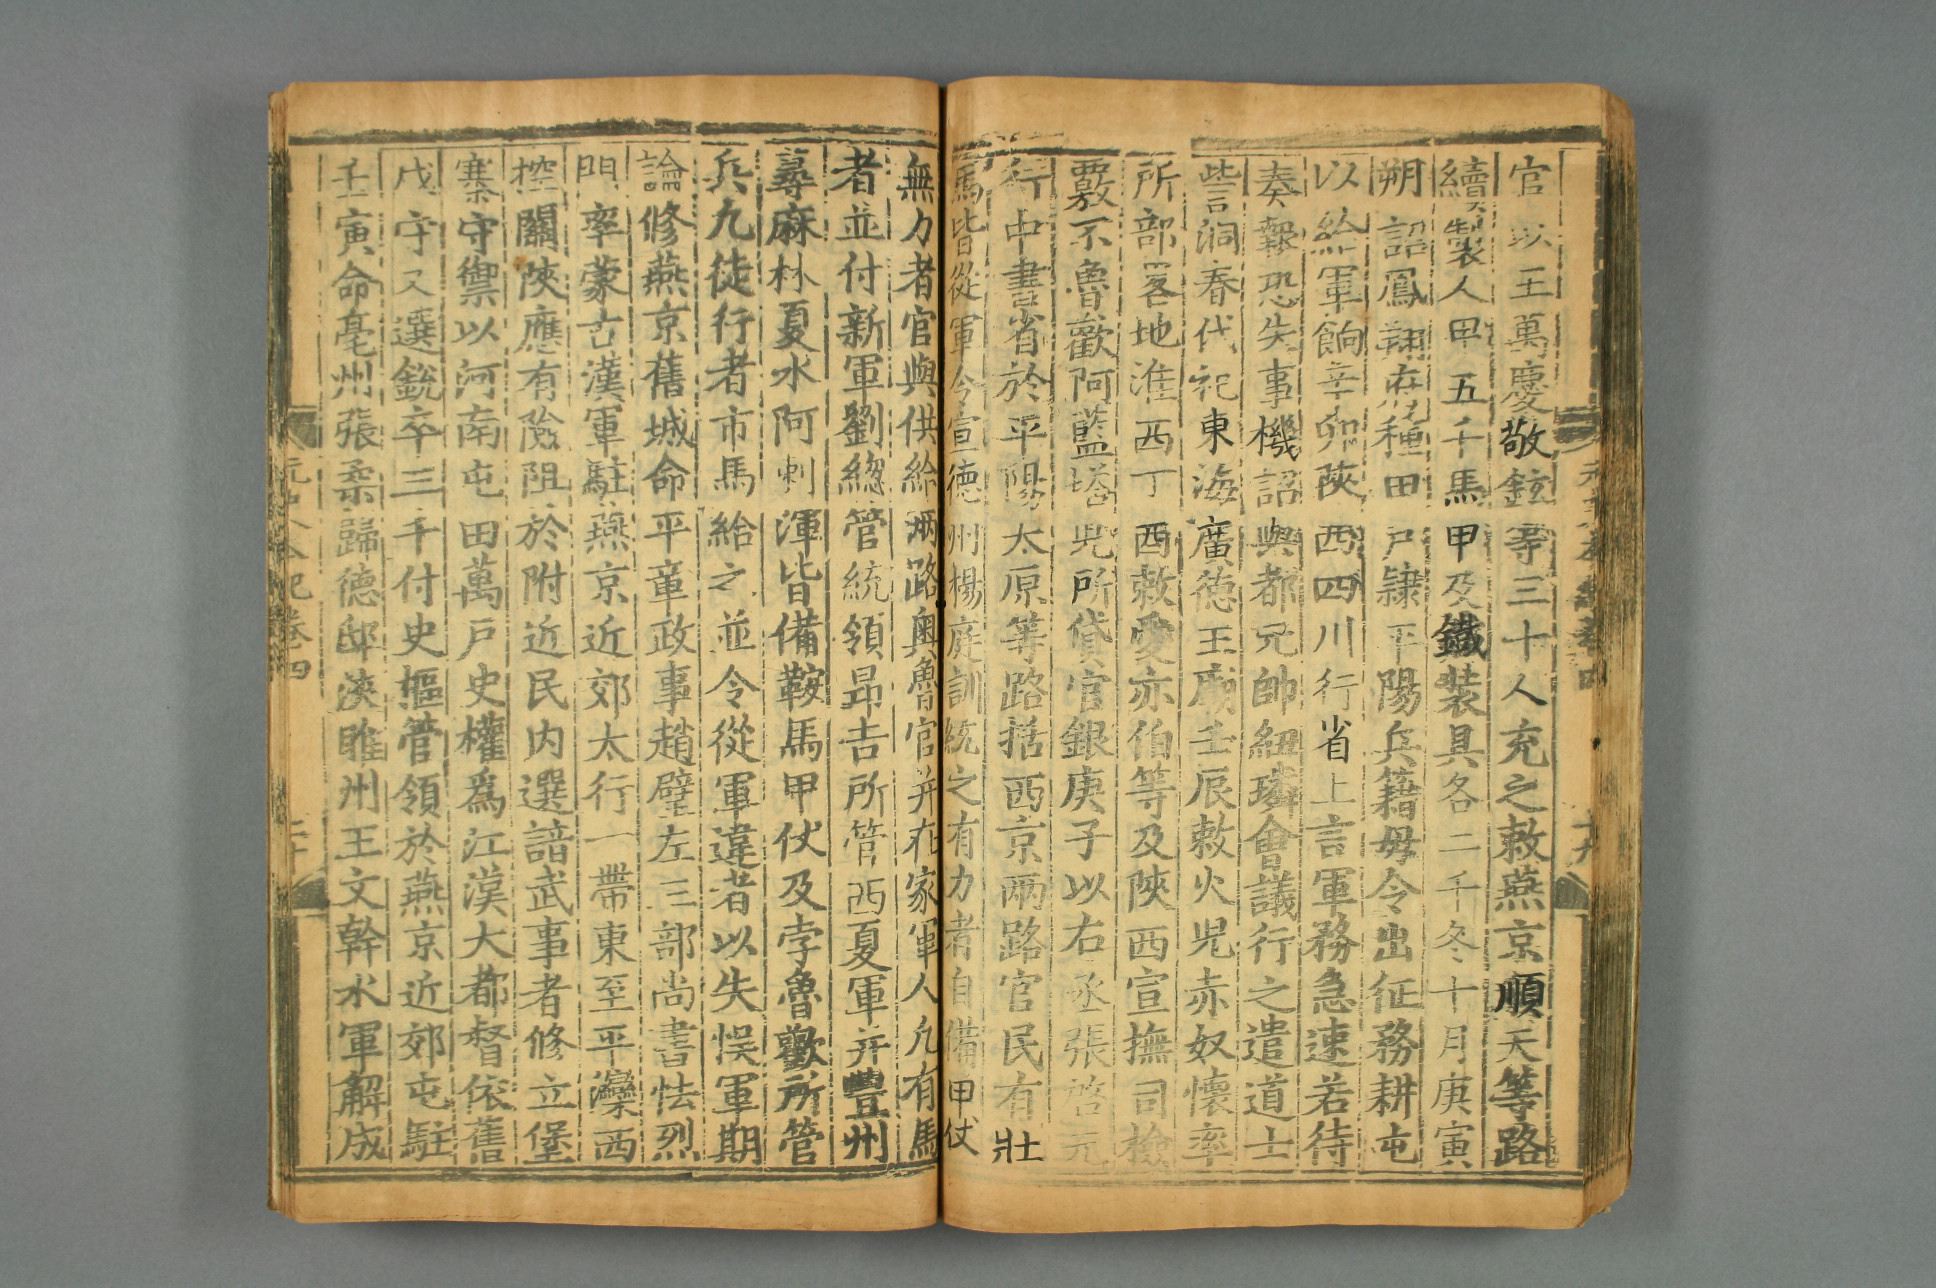 官以王萬慶敬鉉等三十人充之敕燕京順天等路
續製人甲五千馬甲及鐵裝具各二千冬十月庚寅
朔詔鳳翔府種田戸隷平陽兵籍毋令出征務耕屯
以給軍餉辛卯陝西四川行省上言軍務急速若待
奏報恐失事機詔與都元帥紐璘會議行之遣道士
訾洞春代祀東海廣德王廟壬辰敕火児赤奴懷率
所部畧地淮西丁酉敕愛亦伯等及陝西宣撫司檢
覈不魯歡阿藍塔児所貸官銀庚子以右丞張啓元
行中書省於平陽太原等路括西京兩路官民有壯
馬皆從軍令宣德州楊庭訓統之有力者自備甲仗
無力者官與供給兩路奥魯官并在家軍人凡有馬
者並付新軍劉總管統領昂吉所管西夏軍并豐州
蕁麻林夏水阿剌渾皆備鞍馬甲仗及孛魯歡所管
兵凢徒行者市馬給之並令從軍違者以失悞軍期
論修燕京舊城命平章政事趙璧左三部尚書怯烈
門率蒙古漢軍駐燕京近郊太行一帶東至平灤西
控關陜應有險阻於附近民内選諳武事者修立堡
寨守禦以河南屯田萬戸史權爲江漢大都督依舊
戍守又選銳卒三千付史樞管領於燕京近郊屯駐
壬寅命亳州張柔歸德邸浹睢州王文幹水軍解成
元史本紀卷四
二十
十九